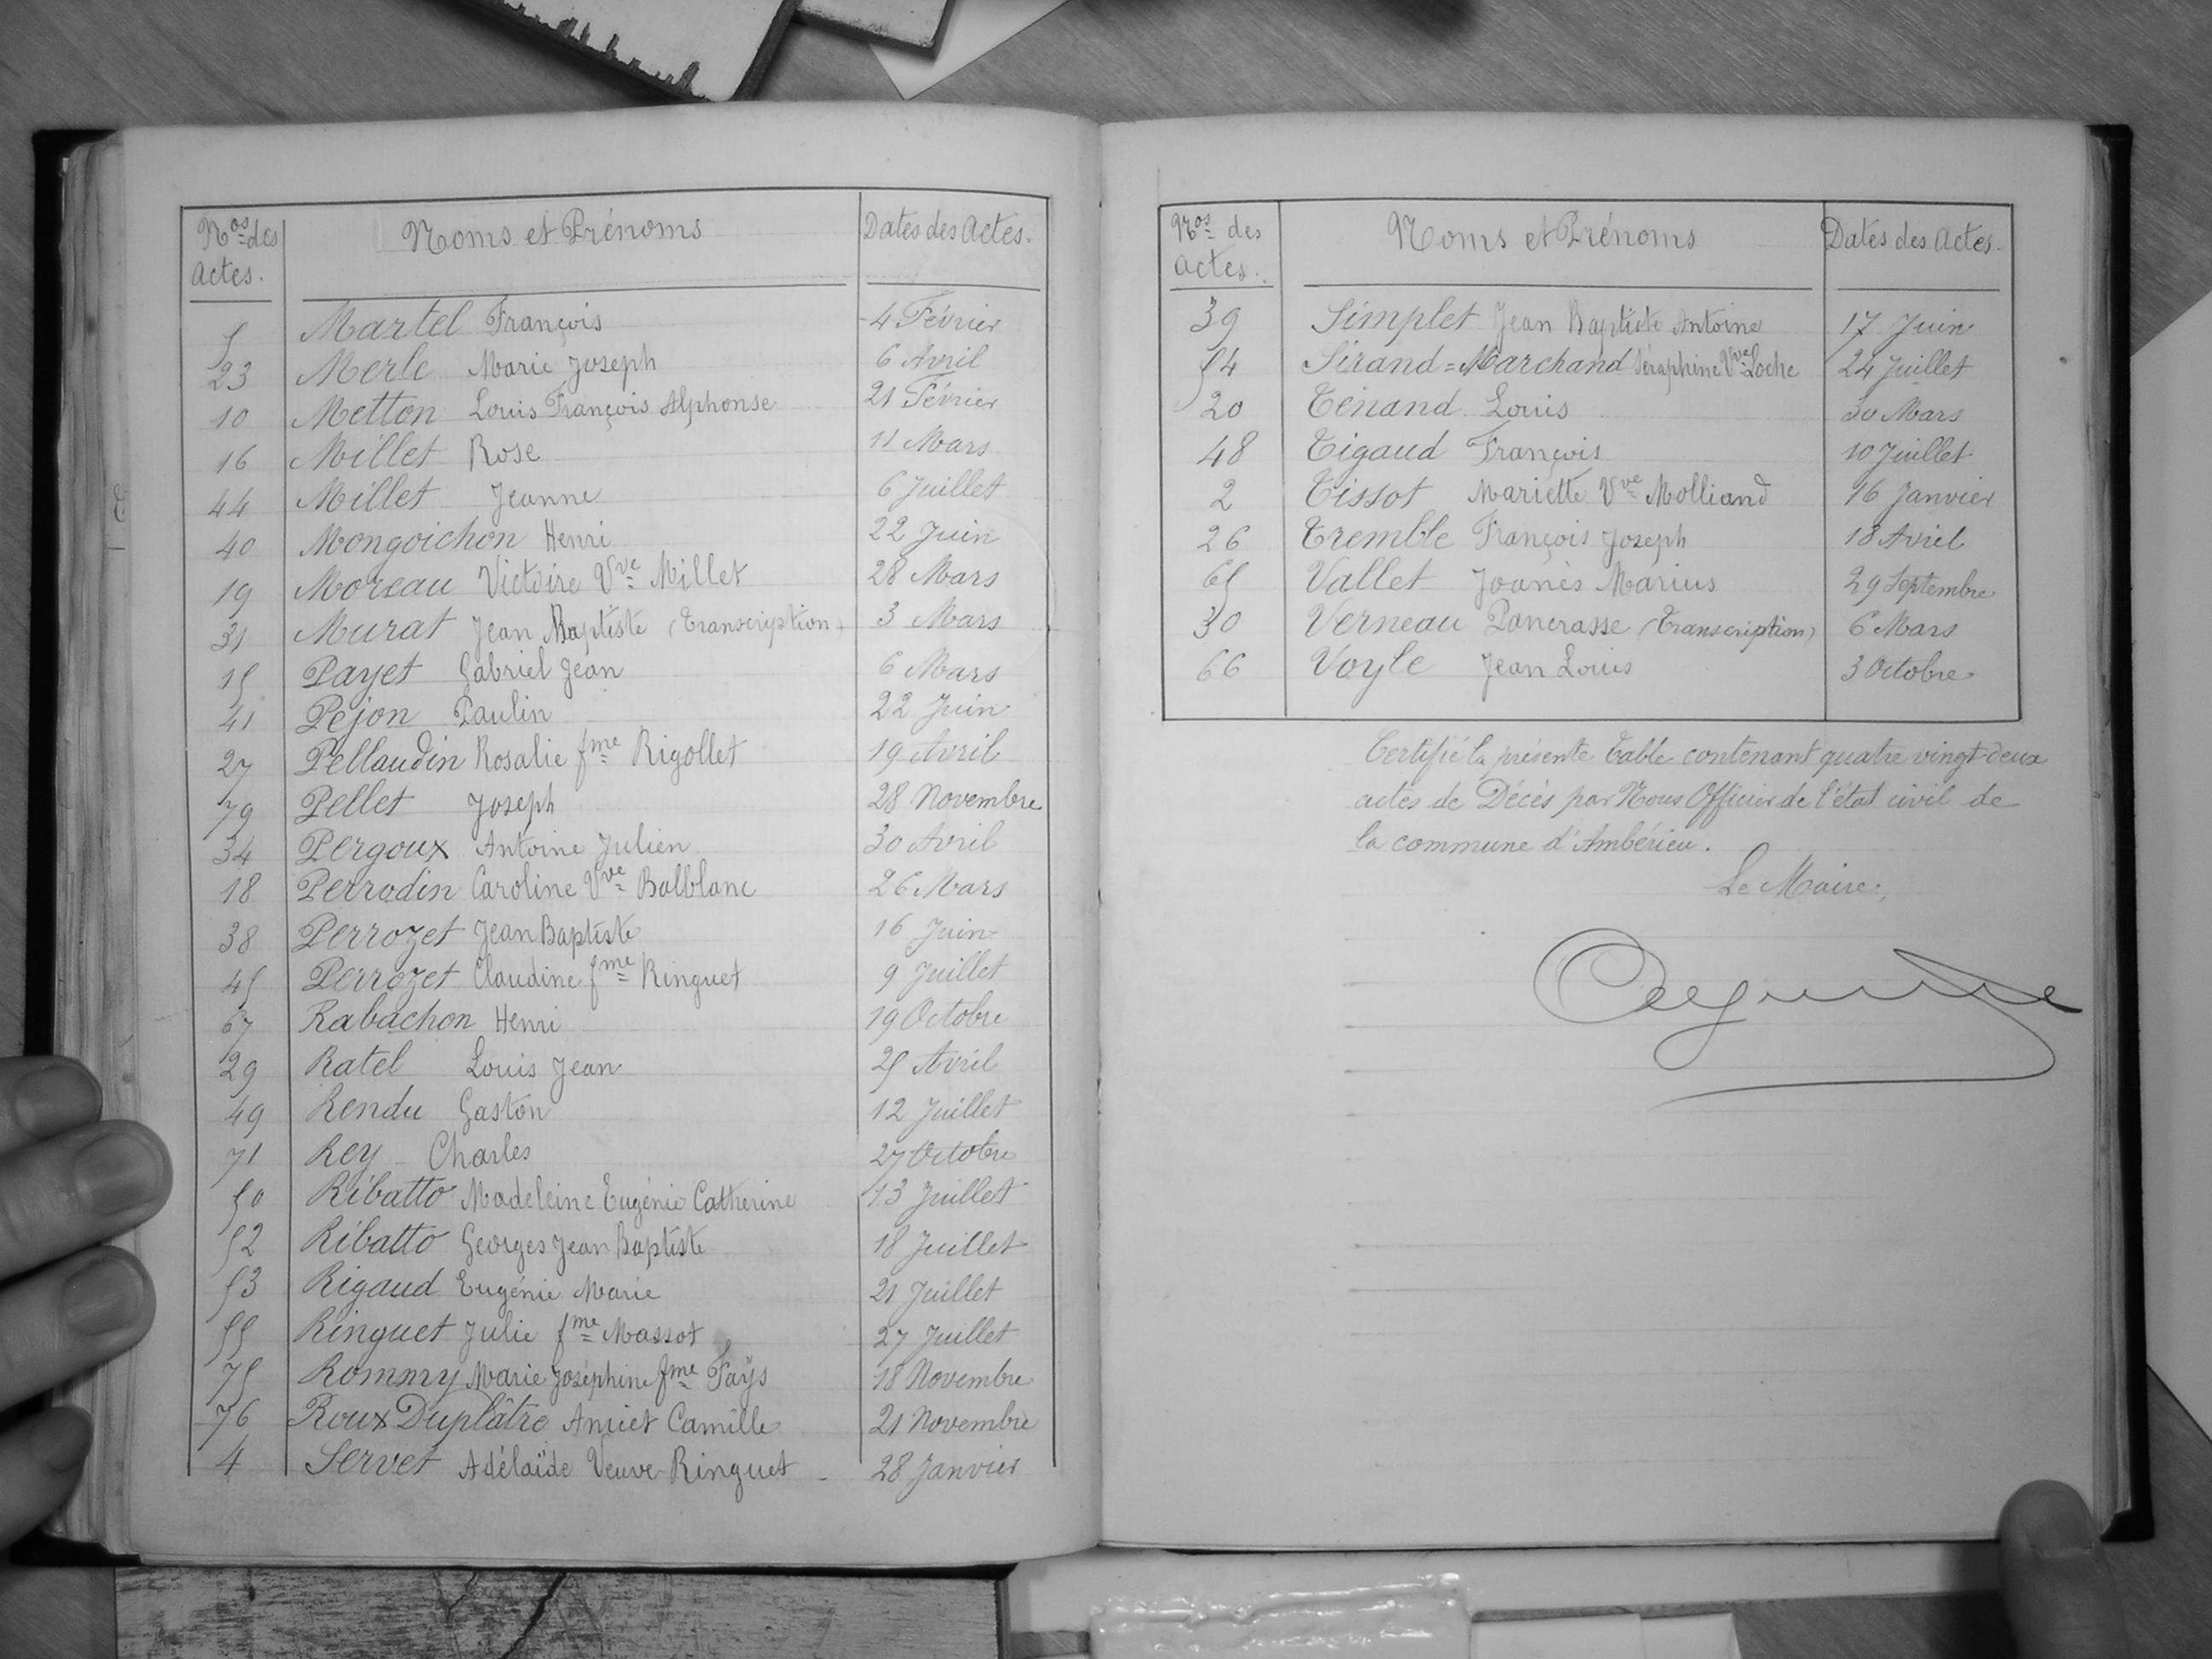 Nos des Actes. Noms et Prénoms Dates des Actes.
5 Martel François 4 Février
23 Merle Marie Joseph 6 Avril
10 Metton Louis François Alphonse 21 Février
16 Millet Rose 11 Mars
44 Millet Jeanne 6 Juillet
40 Mongoichon Henri 22 Juin
19 Moreau Victoire Vve Millet 28 Mars
31 Murat Jean Baptiste (Transcription) 3 Mars
15 Payet Gabriel Jean 6 Mars
41 Pejon Paulin 22 Juin
27 Pellaudin Rosalie fme Rigollet 19 Avril
79 Pellet Joseph 28 Novembre
34 Pergoux Antoine Julien 30 Avril
18 Perrodin Caroline Vve Balblanc 26 Mars
38 Perrozet Jean Baptiste 16 Juin
45 Perrozet Claudine fme Ringuet 9 Juillet
67 Rabachon Henri 19 Octobre
29 Ratel Louis Jean 25 Avril
49 Rendu Gaston 12 Juillet
71 Rey Charles 27 Octobre
50 Ribatto Madeleine Eugénie Catherine 13 Juillet
52 Ribatto Georges Jean Baptiste 18 Juillet
53 Rigaud Eugénie Marie 21 Juillet
55 Ringuet Julie fme Massot 27 Juillet
75 Rommy Marie Joséphine fme Faÿs 18 Novembre
76 Roux Duplâtre Amiet Camille 21 Novembre
4 Servet Adélaïde Veuve Ringuet 28 Janvier
Nos des Actes. Noms et Prénoms Dates des Actes.
39 Simplet Jean Baptiste Antoine 17 Juin
54 Sirand=Marchand Séraphine Vve Loche 24 Juillet
20 Tenand Louis 30 Mars
48 Tigaud François 10 Juillet
2 Tissot Mariette Vve Molliand 16 Janvier
26 Tremble François Joseph 18 Avril
65 Vallet Joanès Marius 29 Septembre
30 Verneau Pancrasse (Transcription) 6 Mars
66 Voyle Jean Louis 3 Octobre
Certifié la présente Table contenant quatre vingt-deux
actes de Décès par Nous Officier de l'état civil de
la commune d'Ambérieu.
Le Maire,